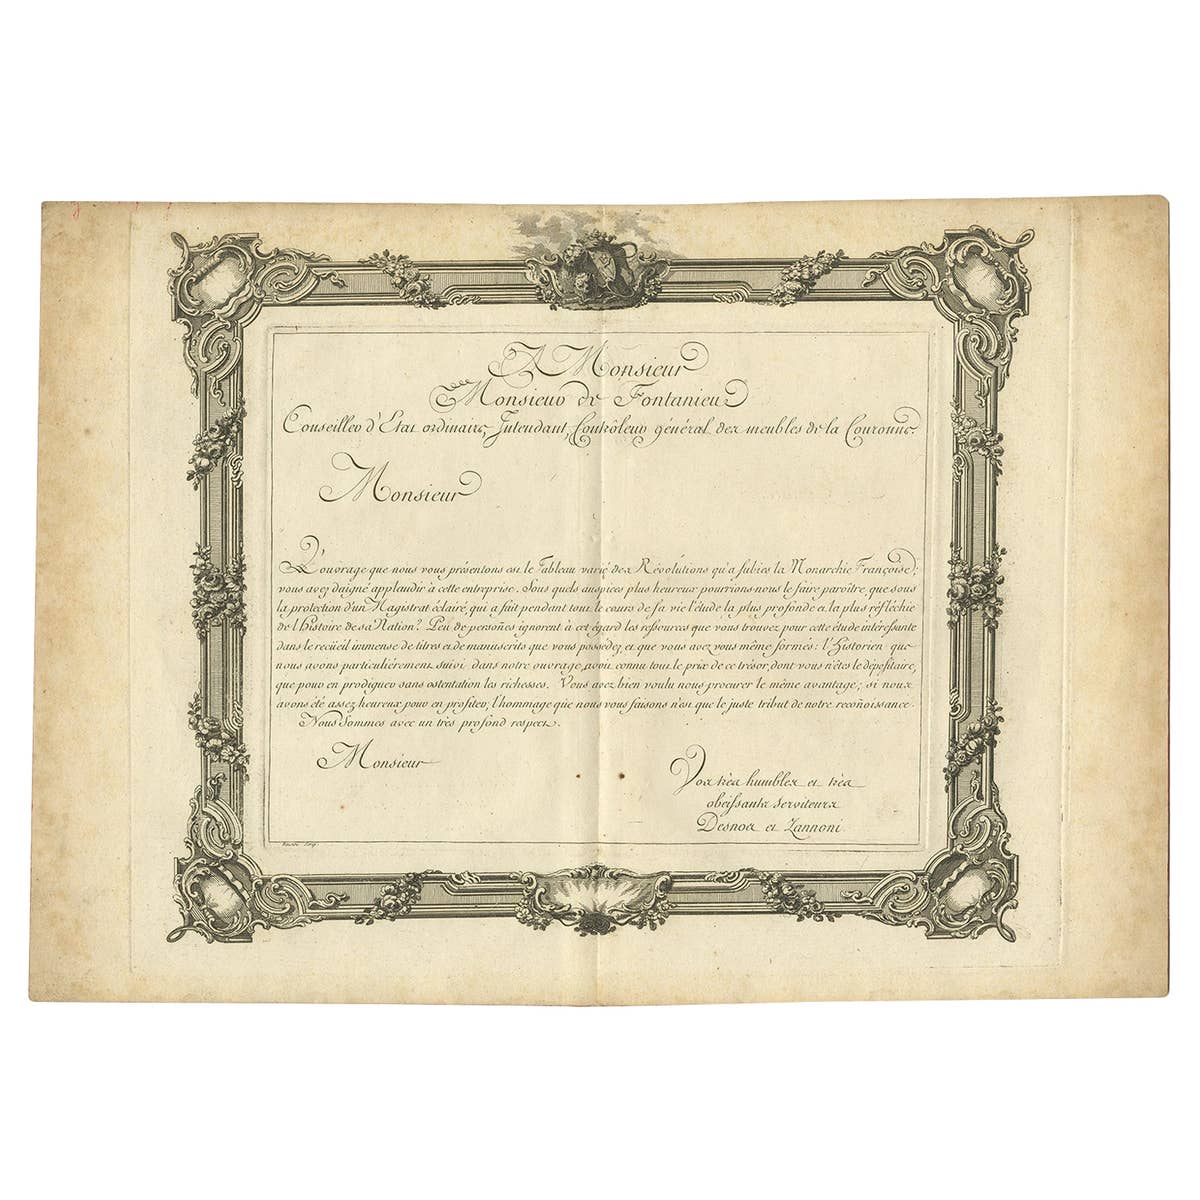 A Monsieur
Monsieur de Fontanieu
Conseiller d'Etat ordinaire, Intendant, Contrôleur général des meubles de la Couronne.
Monsieur
L'ouvrage que nous vous présentons est le Tableau varié des Révolutions qu'a subies la Monarchie Françoise;
vous avez daigné applaudir à cette entreprise. Sous quels auspices plus heureux pourrions-nous le faire paroître, que sous
la protection d'un Magistrat éclairé, qui a fait pendant tout le cours de sa vie l'étude la plus profonde et la plus réfléchie
de l'Histoire de sa Nation? Peu de persoñes ignorent à cet égard les ressources que vous trouvez pour cette étude intéressante
dans le recüeil immense de titres et de manuscrits que vous possédez et que vous avez vous même formés: l'Historien que
nous avons particuliérement suivi dans notre ouvrage, avoit connu tout le prix de ce trésor, dont vous n'êtes le dépositaire,
que pour en prodiguer sans ostentation les richesses. Vous avez bien voulu nous procurer le même avantage; si nous
avons été assez heureux pour en profiter, l'hommage que nous vous faisons n'est que le juste tribut de notre reconoissance.
Nous Sommes avec un très profond respect.
Monsieur
Vos très humbles et très
obéissants serviteurs
Desnos et Zannoni.